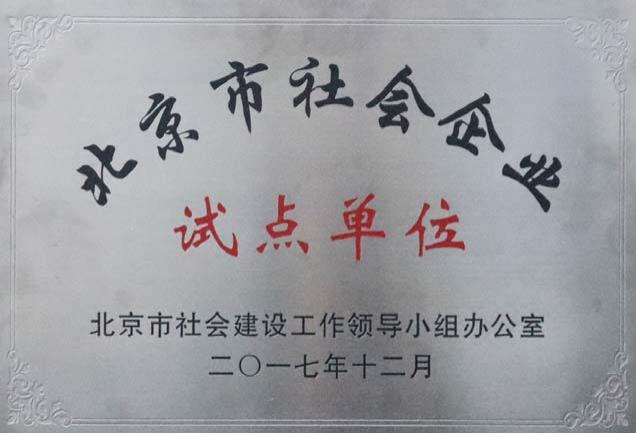 北京市社会企业
试点单位
北京市社会建设工作领导小组办公室
二〇一七年十二月